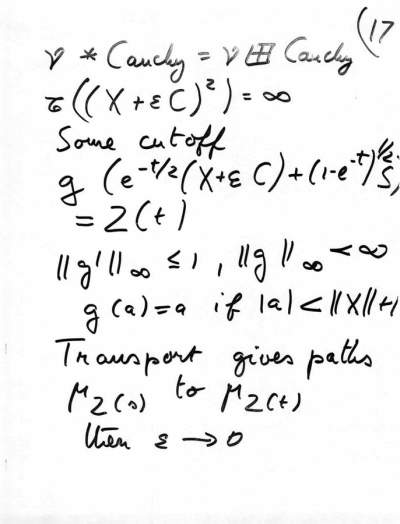 (17
ν * Cauchy = ν ⊞ Cauchy
τ((X + εC)²) = ∞
Some cutoff
g (e^{-t/2}(X+εC)+(1-e^{-t})^{1/2}S)
= Z(t)
||g'||_∞ ≤ 1, ||g||_∞ < ∞
g(a)=a if |a|<||X||+1
Transport gives paths
μ_{Z(s)} to μ_{Z(t)}
then ε → 0